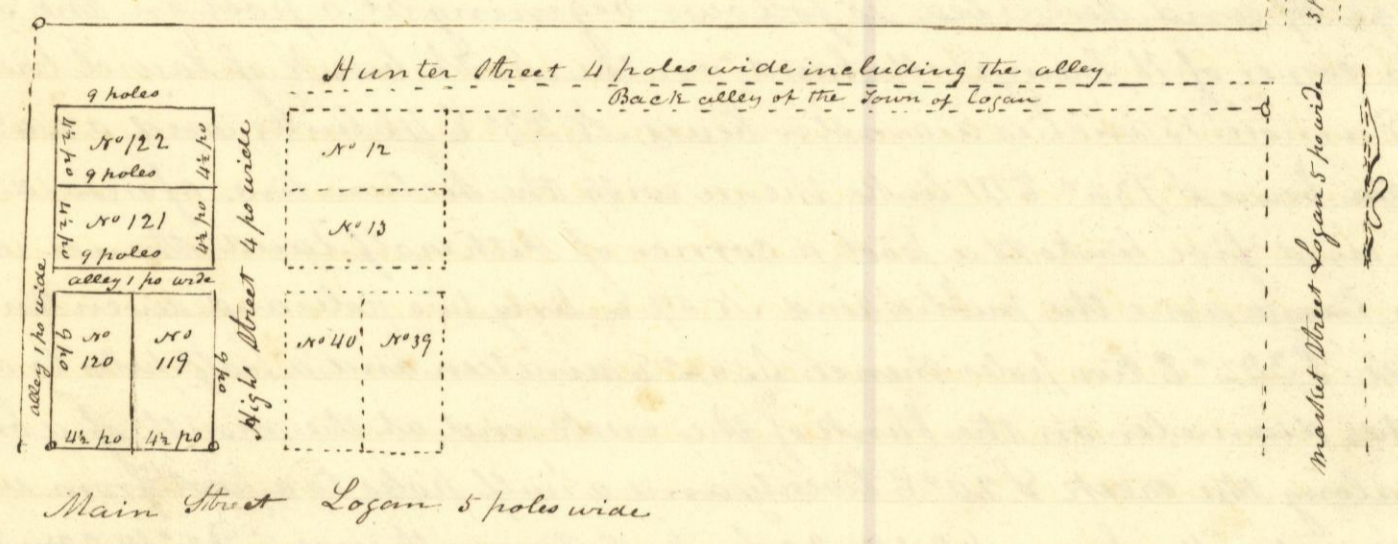 Hunter Street 4 poles wide including the alley
Back alley of the Town of Logan
9 poles
No 122
4½ po
4½ po
9 poles
No 121
4½ po
4½ po
9 poles
alley 1 po wide
alley 1 po wide
No 120
9 po
No 119
9 po
4½ po
4½ po
High Street 4 po wide
No 12
No 13
No 40
No 39
market Street Logan 5 po wide
Main Street Logan 5 poles wide